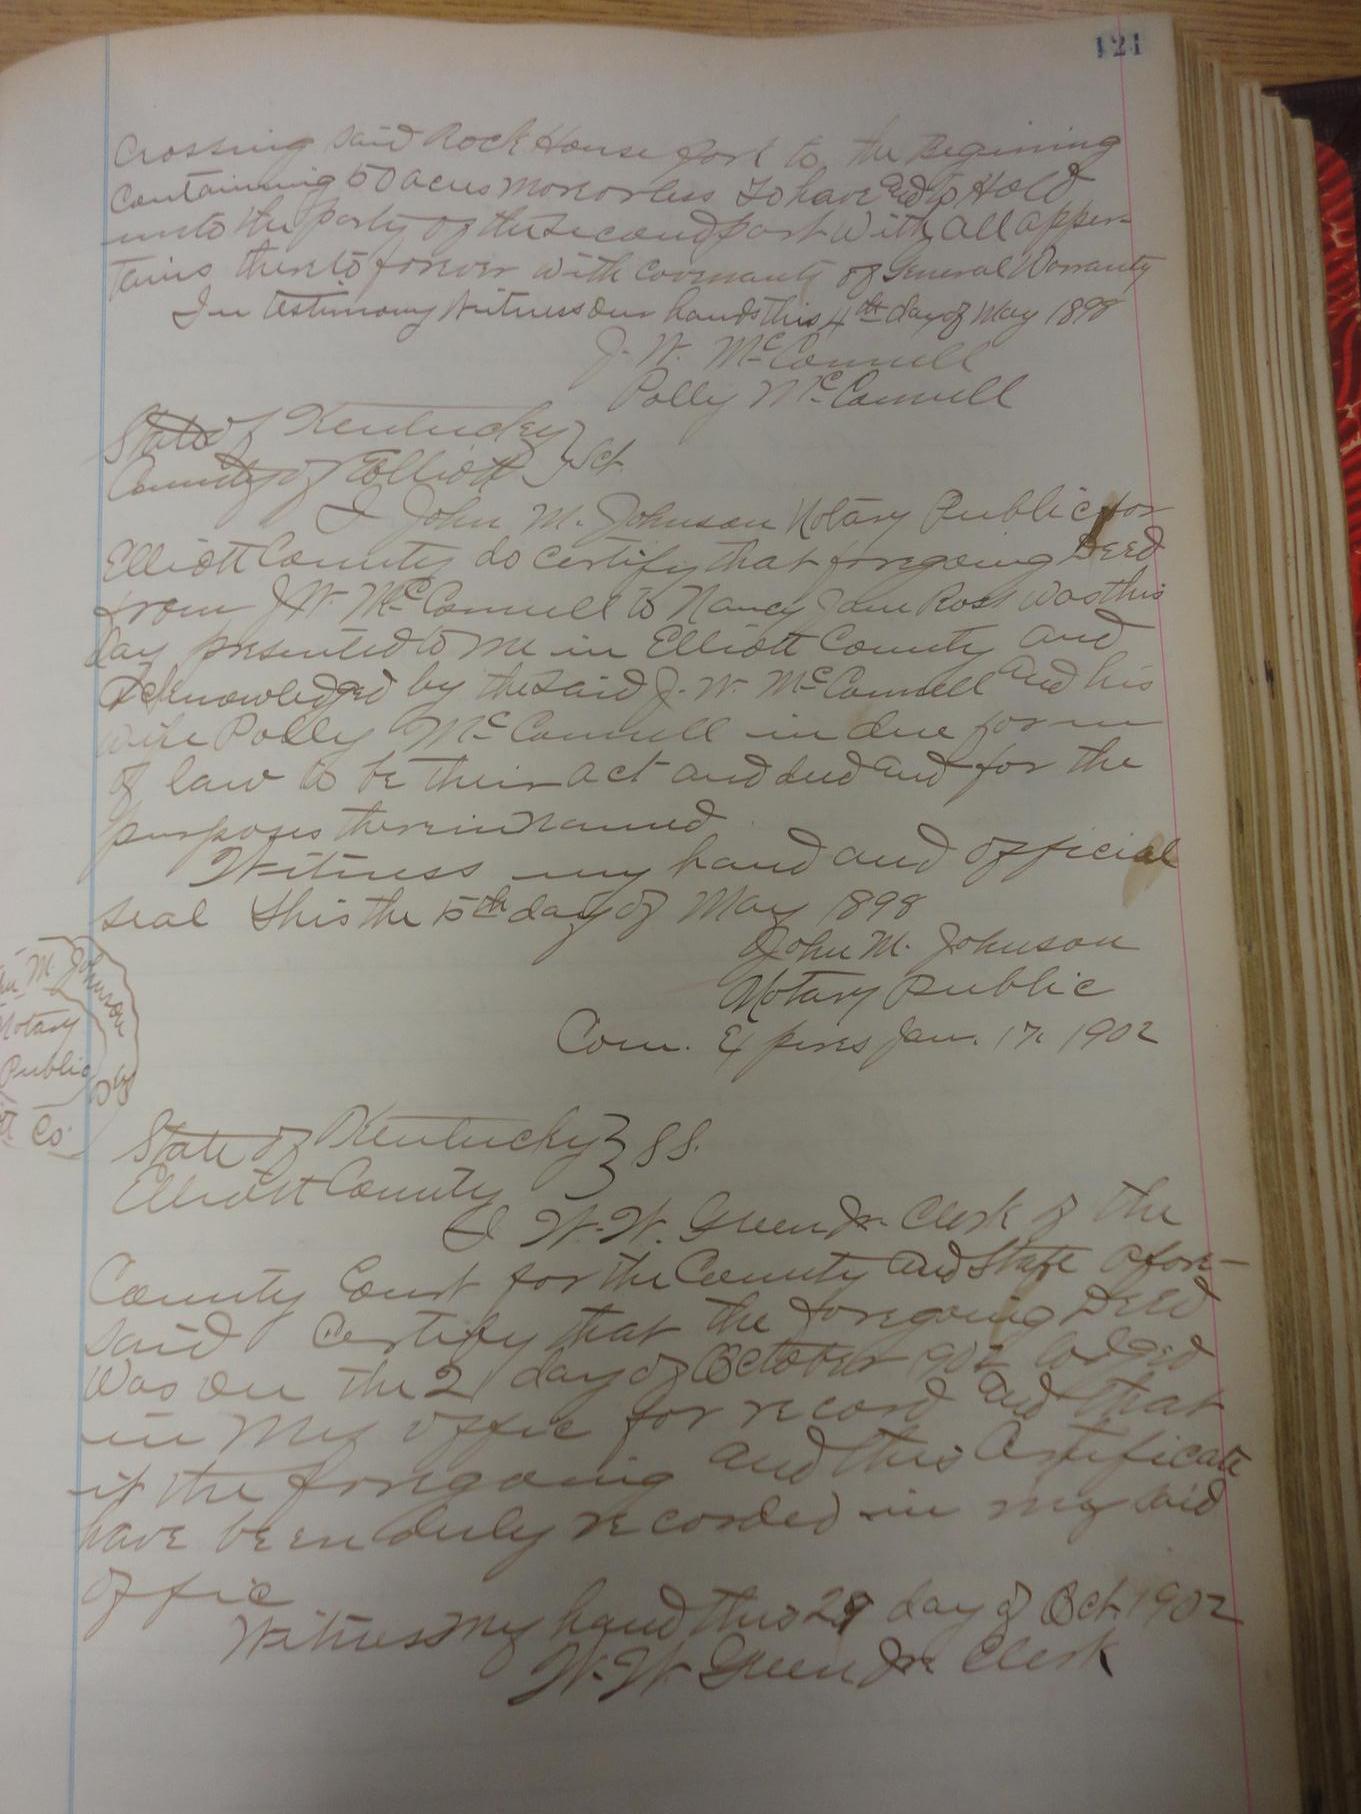 121
Crossing said Rock House fork to the Begining
Containing 50 acres more or less To have and to Hold
unto the party of the second part With all apper-
tains thereto forever with Covenants of General Warranty
In testimony Witness our hands this 4th day of May 1898
J. W. McConnell
Polly McConnell
State of Kentucky }
County of Elliott } Sct
I John M. Johnson Notary Public for
Elliott County do certify that foregoing Deed
from J W McConnell to Nancy Jane Ross was this
day presented to me in Elliott County and
acknowledged by the said J. W. McConnell and his
wife Polly McConnell in due form
of law to be their act and deed and for the
purposes therein named
Witness my hand and official
seal this the 15th day of May 1898
John M. Johnson
Notary Public
Com. Expires Jan. 17. 1902
M. Johnson
Notary
Public
Co.
State of Kentucky } SS.
Elliott County
I W. W. Green Jr. Clerk of the
County Court for the County and State afore-
said Certify that the foregoing Deed
Was on the 2 day of October 1902 lodged
in My offic for record and that
it the foregoing and this Certificate
have been duly recorded in my said
offic
Witness my hand this 29 day of Oct. 1902
W. W Green Jr Clerk